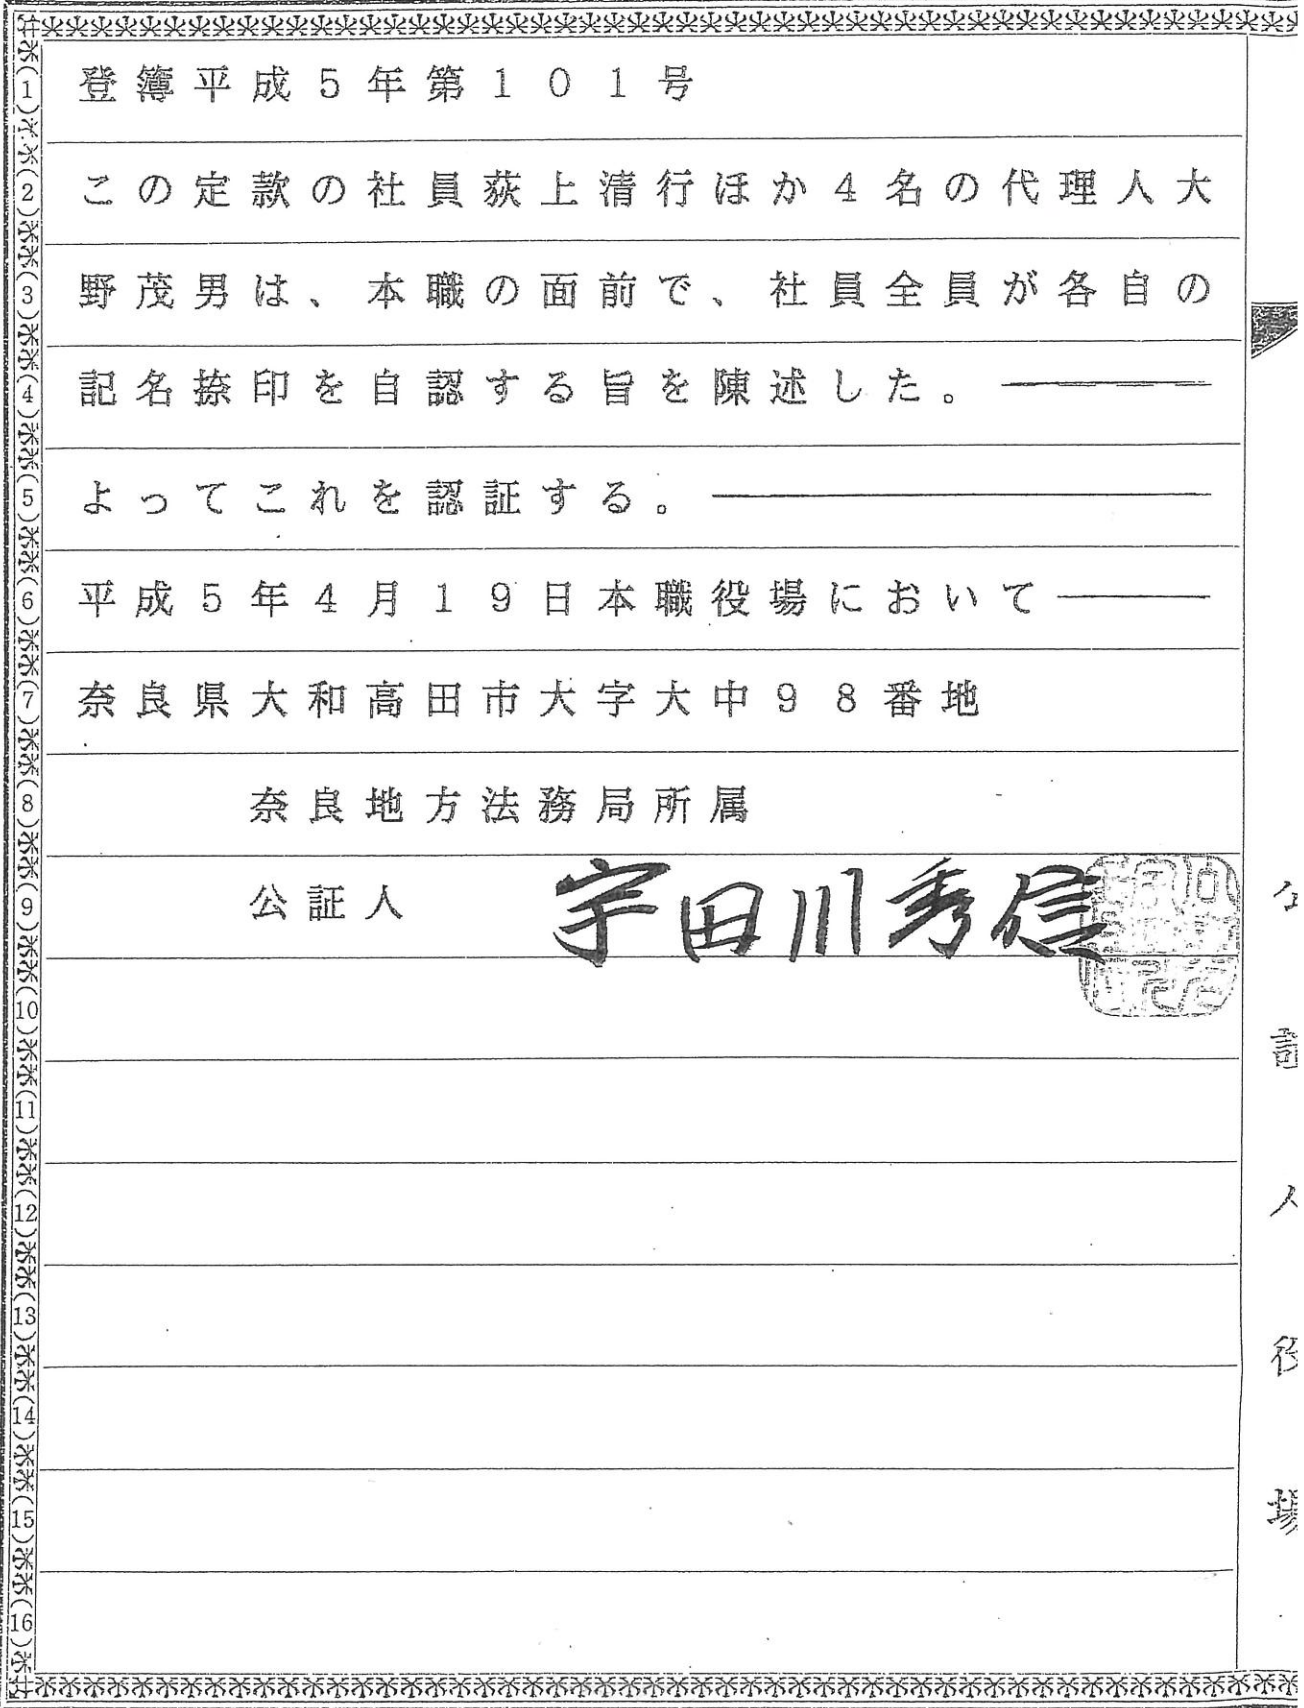 登簿平成5年第101号
この定款の社員荻上清行ほか4名の代理人大
野茂男は、本職の面前で、社員全員が各自の
記名捺印を自認する旨を陳述した。
よってこれを認証する。
平成5年4月19日本職役場において
奈良県大和高田市大字大中98番地
奈良地方法務局所属
公証人 宇田川秀信
(1)
(2)
(3)
(4)
(5)
(6)
(7)
(8)
(9)
(10)
(11)
(12)
(13)
(14)
(15)
(16)
公証人役場